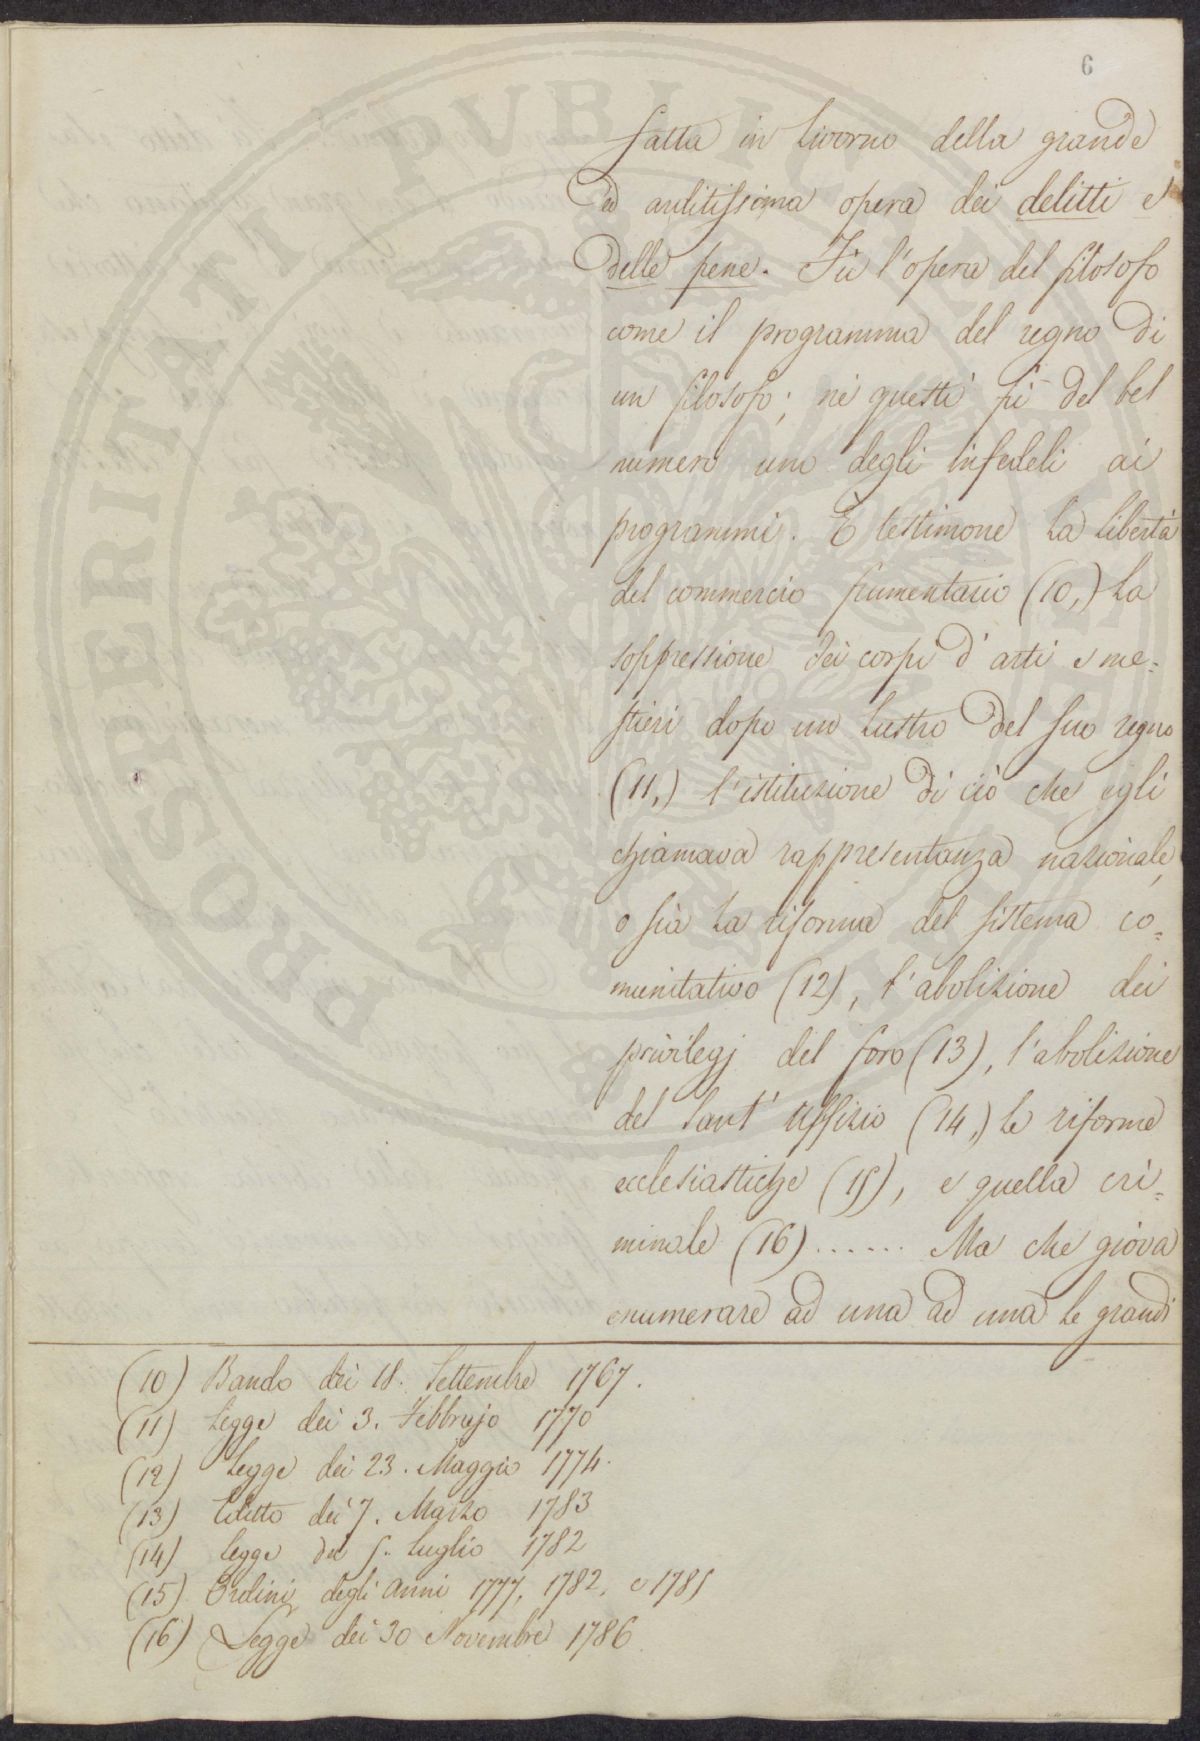 6
fatta in Livorno della grande
ed arditissima opera dei delitti e
delle pene. Fù l'opera del filosofo
come il programma del regno di
un filosofo; nè questi fù del bel
numero uno degli infedeli ai
programmi. È testimone la libertà
del commercio frumentario (10,) la
soppressione dei corpi d'arti e me=
stieri dopo un lustro del suo regno
(11,) l'istituzione di ciò che egli
chiamava rappresentanza nazionale,
o sia la riforma del sistema co=
munitativo (12), l'abolizione dei
privilegj del foro (13), l'abolizione
del Sant' Uffizio (14,) le riforme
ecclesiastiche (15), e quella cri=
minale (16) ...... Ma che giova
enumerare ad una ad una le grandi
(10) Bando dei 18. Settembre 1767.
(11) Legge dei 3. Febbrajo 1770
(12) Legge dei 23. Maggio 1774.
(13) Editto dei 7. Marzo 1783
(14) legge dei 5. Luglio 1782
(15) Ordini degli anni 1777, 1782, e 1785
(16) Legge dei 30 Novembre 1786.
PROSPERITATI PUBLICAE